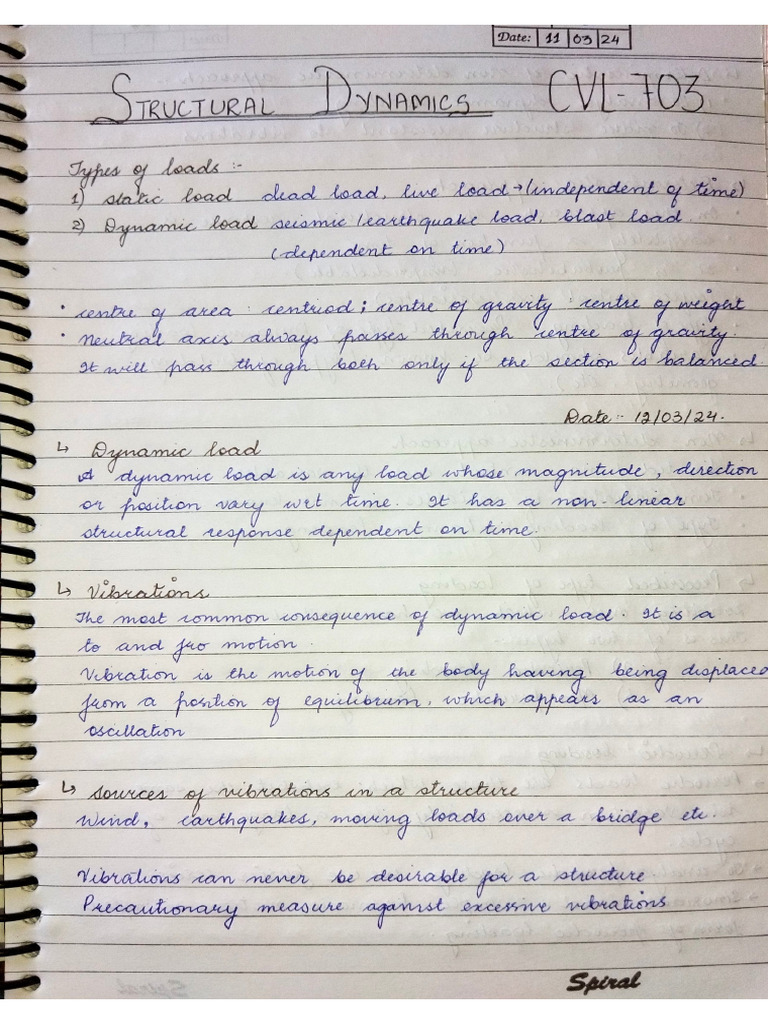 Date: 11 03 24
STRUCTURAL DYNAMICS CVL-703
Types of loads :-
1) static load dead load, live load → (independent of time)
2) Dynamic load seismic/earthquake load, blast load.
(dependent on time)
• centre of area : centriod ; centre of gravity : centre of weight
• Neutral axis always passes through centre of gravity.
It will pass through both only if the section is balanced.
Date :- 12/03/24.
↳ Dynamic load
A dynamic load is any load whose magnitude, direction
or position vary wrt time. It has a non-linear
structural response dependent on time.
↳ Vibrations
The most common consequence of dynamic load. It is a
to and fro motion.
Vibration is the motion of the body having being displaced
from a position of equilibrium, which appears as an
oscillation
↳ Sources of vibrations in a structure
Wind, earthquakes, moving loads over a bridge etc.
Vibrations can never be desirable for a structure.
Precautionary measure against excessive vibrations
Spiral